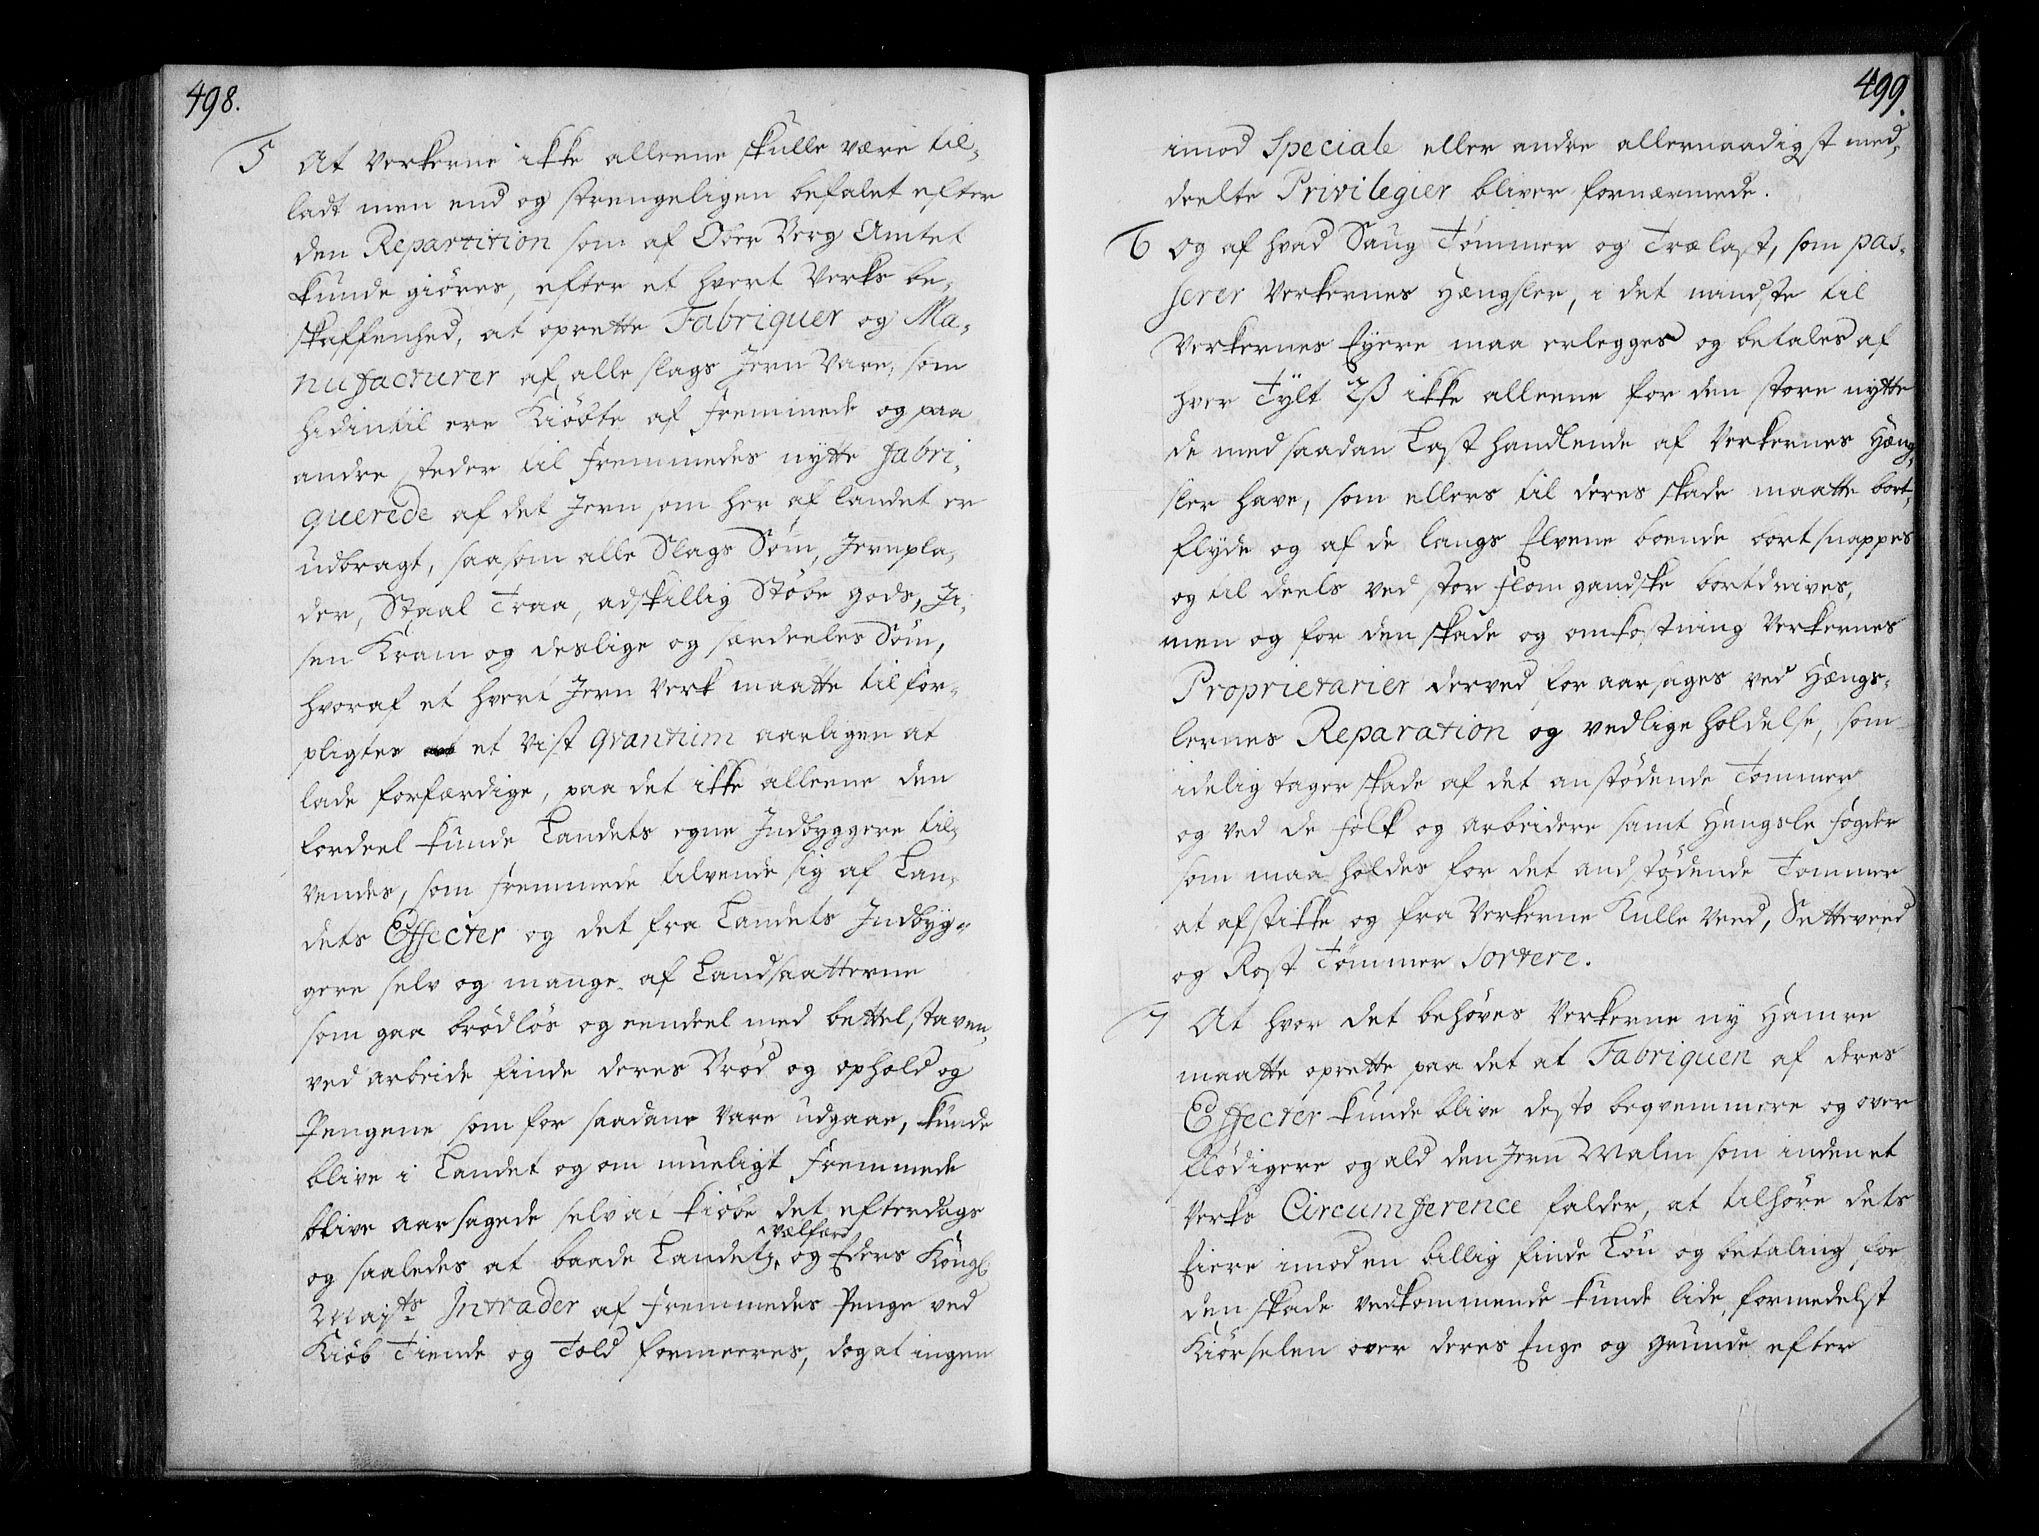 498.
5 At Verkerne ikke alleene skulle være til-
ladt men end og strengeligen befalet efter
den Repartition som af Ober Berg Amtet
kunde giøres, efter et hvert Verks be-
skaffenhed, at oprette Fabriquer og Ma-
nufacturer af alle slags Jern Vare, som
hidintil ere Kiøbte af fremmede og paa
andre steder til fremmedes nytte fabri-
querede af det Jern som her af landet er
udbragt, saasom alle Slags Søm, Jernpla-
der, Staal Traa, adskillig Støbe gods, Ji-
sen Kram og deslige og særdeeles Søm,
hvoraf et hvert Jern Verk maatte tilfor-
pligtes et vist qvantum aarligen at
lade forfærdige, paa det ikke alleene den
fordeel kunde Landets egne Indbyggere til-
vendes, som fremmede tilvende sig af Lan-
dets Effecter og det fra Landets Indbyg-
gere selv og mange af Landsaatterne
som gaa brødløs og eendeel med bettelstaven,
ved arbeide finde deres Brød og ophold og
Pengene som for saadane Vare udgaar, kunde
blive i Landet og om mueligt fremmede
blive aarsagede selv at kiøbe det efterdags
og saaledes at baade Landets Velfærd og Eders Kongl:
Mayts Intrader af fremmedes Penge ved
Kiøb Tiende og Told formeeres, dog at ingen
499.
imod Speciale eller andre allernaadigst med-
deelte Privilegier bliver fornærmede.
6 Og af hvad Saug Tømmer og Trælast, som pas-
serer Verkernes Hængsler, i det mindste til
Verkernes Eyere maa erlegges og betales af
hver Tylt 2ß ikke alleene for den store nytte
de med saadan Last handlende af Verkernes Hæng-
sler have, som ellers til deres skade maatte bort-
flyde og af de langs Elvene boende bortsnappes
og til deels ved stor flom gandske bortdrives,
men og for den skade og omkostning Verkernes
Proprietarier derved foraarsages ved Hængs-
lernes Reparation og vedligeholdelse, som
idelig tager skade af det anstødende Tømmer
og ved de folk og arbeidere samt Hengsle fogder
som maa holdes for det andstødende Tømmer
at afstikke og fra Verkerne Kulle Veed, Setteveed
og Rost Tømmer Sortere.
7 At hvor det behøves Verkerne ny Hamre
maatte oprette paa det at Fabriquen af deres
Effecter kunde blive desto beqvemmere og over
flødigere og ald den Jern Malm som inden et
Verks Circumference falder, at tilhøre dets
Eiere imod en billig finde Løn og betaling for
den skade vedkommende kunde lide formedelst
Kiørselen over deres Enge og grunde efter